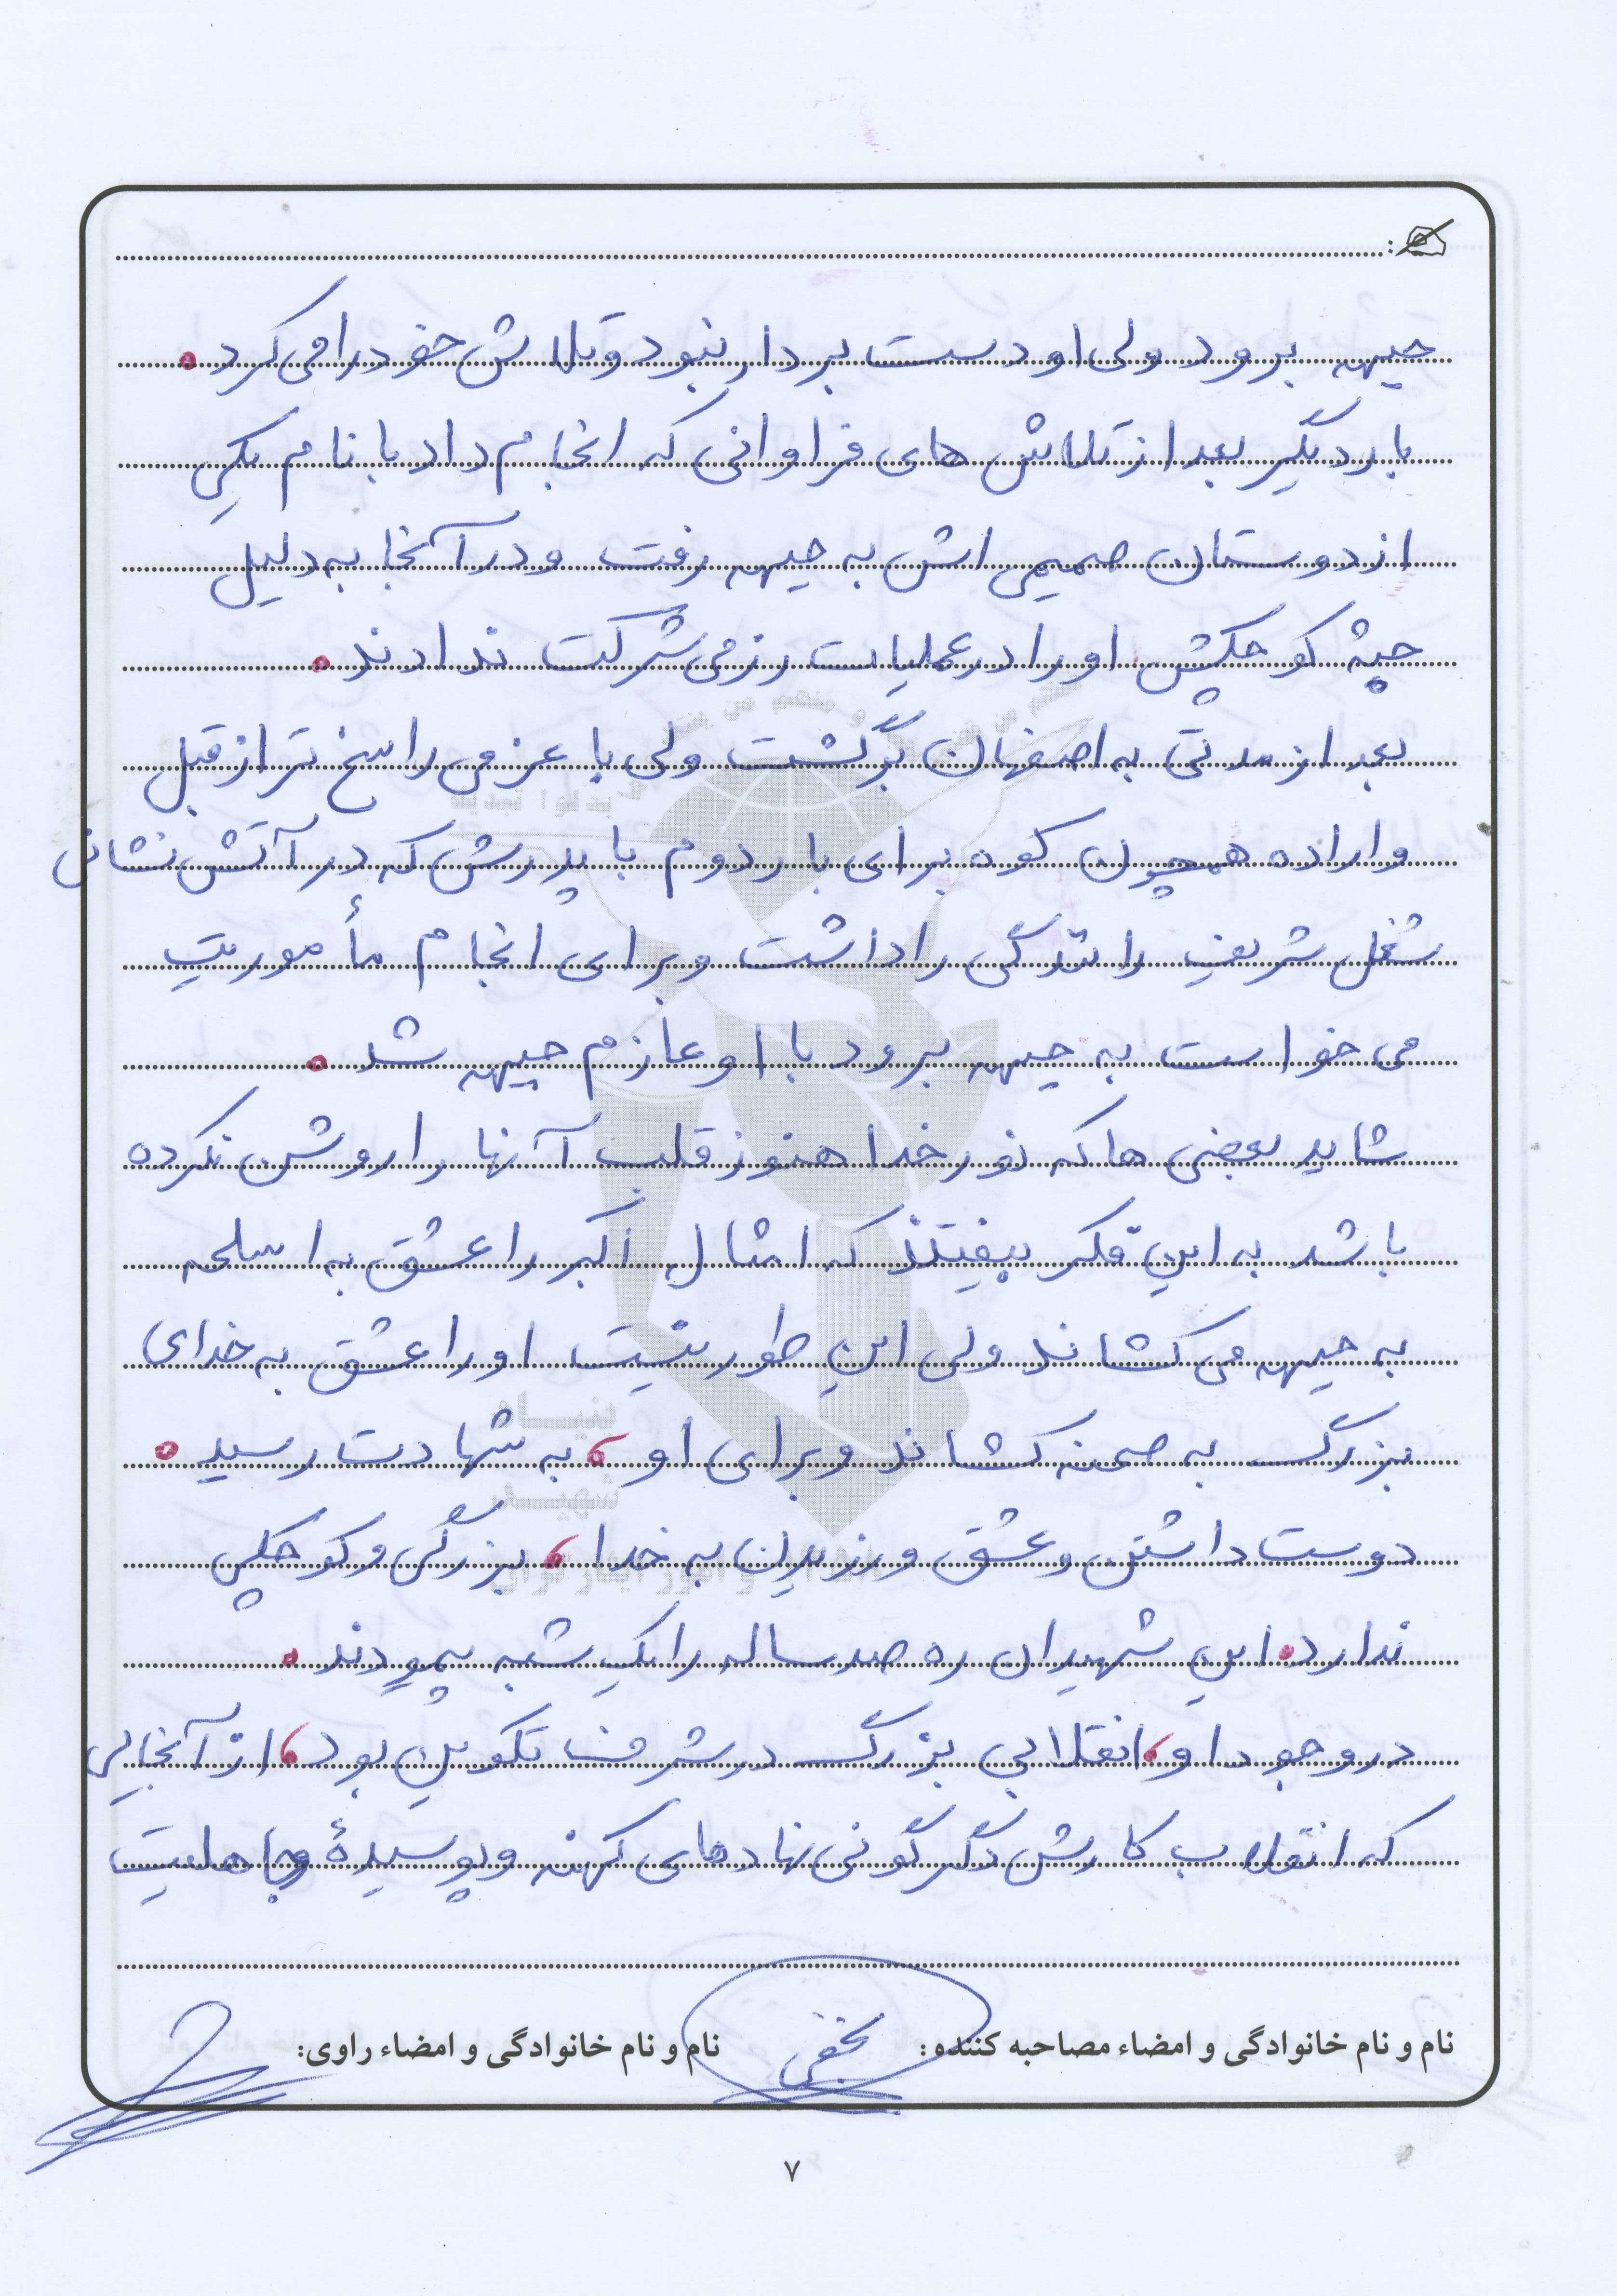 جبهه برود ولی او دست بردار نبود و تلاش خود را می کرد.
بار دیگر بعد از تلاش های فراوانی که انجام داد با نام یکی
از دوستان صمیمی اش به جبهه رفت و در آنجا به دلیل
جثه کوچکش او را در عملیات رزمی شرکت ندادند.
بعد از مدتی به اصفهان برگشت ولی با عزمی راسخ تر از قبل
و اراده همچون کوه برای بار دوم با پدرش که در آتش نشانی
شغل شریف رانندگی را داشت و برای انجام مأموریت
می خواست به جبهه برود با او عازم جبهه شد.
شاید بعضی ها که نور خدا هنوز قلب آنها را روشن نکرده
باشد به این فکر بیفتند که امثال اکبر را عشق به اسلحه
به جبهه می کشاند ولی این طور نیست او را عشق به خدای
بزرگ به صحنه کشاند و برای او، به شهادت رسید.
دوست داشتن و عشق ورزیدن به خدا، بزرگی و کوچکی
ندارد. این شهیدان ره صد ساله را یک شبه پیمودند.
در وجود او، انقلابی بزرگ در شرف تکوین بود، از آنجایی
که انقلاب کارش دگرگونی نهادهای کهنه و پوسیدهٔ جاهلیت
نام و نام خانوادگی و امضاء مصاحبه کننده: نام و نام خانوادگی و امضاء راوی:
۷